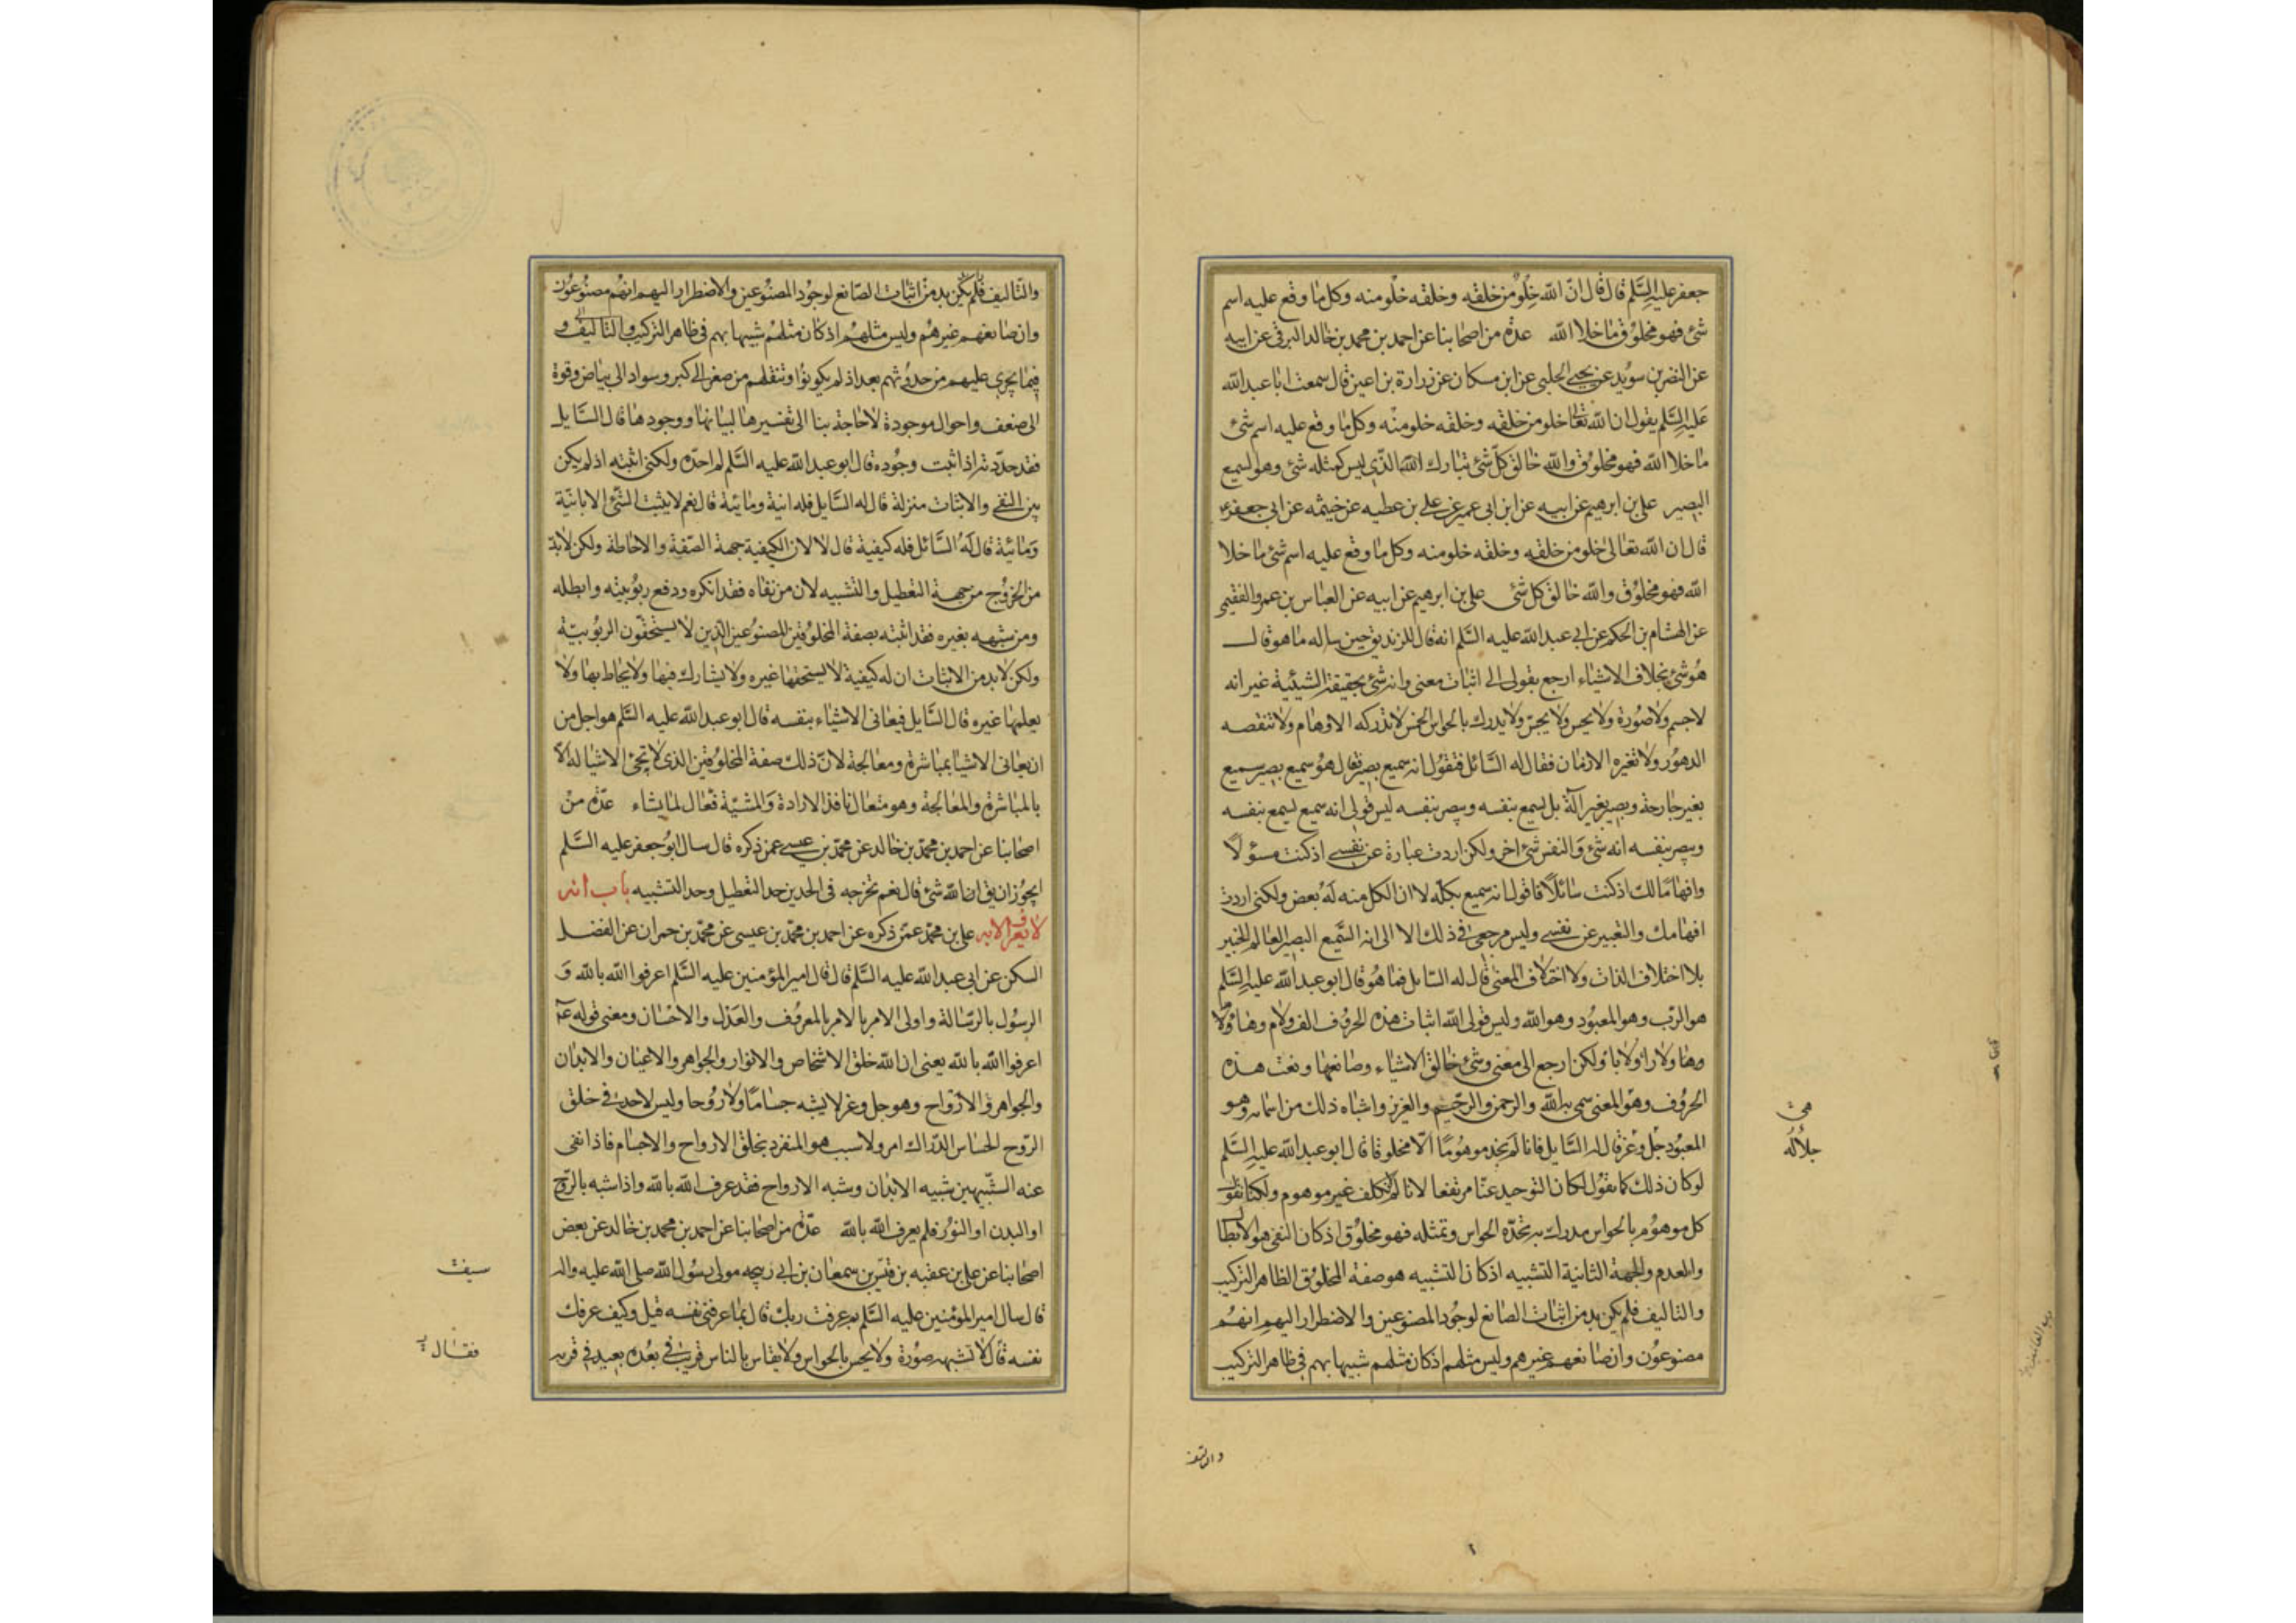 جعفر عليه السلم قال قال ان الله خلو من خلقه وخلقه خلو منه وكل ما وقع عليه اسم
شئ فهو مخلوق ما خلا الله عدة من اصحابنا عن احمد بن محمد بن خالد البرقى عن ابيه
عن النضر بن سويد عن يحيى الحلبى عن ابن مسكان عن زرارة بن اعين قال سمعت ابا عبد الله
عليه السلم يقول ان الله تعالى خلو من خلقه وخلقه خلو منه وكل ما وقع عليه اسم شئ
ما خلا الله فهو مخلوق والله خالق كل شئ تبارك الله الذى ليس كمثله شئ وهو لسميع
البصير على بن ابرهيم عن ابيه عن ابن ابى عمير عن على بن عطيه عن خيثمه عن ابى جعفر ع
قال ان الله تعالى خلو من خلقه وخلقه خلو منه وكل ما وقع عليه اسم شئ ما خلا
الله فهو مخلوق والله خالق كل شئ على بن ابرهيم عن ابيه عن العباس بن عمرو الفقيمى
عن الهشام بن الحكم عن ابى عبد الله عليه السلم انه قال للزنديق حين ساله ما هو قال
هو شئ بخلاف الاشياء ارجع بقولى الى اثبات معنى وانه شئ بحقيقة الشيئية غير انه
لا جسم ولا صورة ولا يحس ولا يجس ولا يدرك بالحواس الخمس لا تدركه الاوهام ولا تنقصه
الدهور ولا تغيره الازمان فقال له السائل فتقول انه سميع بصير قال هو سميع بصير سميع
بغير جارحة وبصير بغير آلة بل يسمع بنفسه ويبصر بنفسه ليس قولى انه سميع يسمع بنفسه
ويبصر بنفسه انه شئ والنفس شئ اخر ولكن اردت عبارة عن نفسى اذ كنت مسؤلا
وافهاما لك اذ كنت سائلا فاقول انه سميع بكله لا ان الكل منه له بعض ولكنى اردت
افهامك والتعبير عن نفسى وليس مرجعى فى ذلك الا الى انه السميع البصير العالم الخبير
بلا اختلاف الذات ولا اختلاف المعنى قال له السايل فما هو قال ابو عبد الله عليه السلم
هو الرب وهو المعبود وهو الله وليس قولى الله اثبات هذه الحروف الف ولام وهاء ولا
وها ولا را ولا با ولكن ارجع الى معنى وشئ خالق الاشياء وصانعها ونعت هذه
الحروف وهو المعنى سمى به الله والرحمن والرحيم والعزيز واشباه ذلك من اسمائه وهو
المعبود جل وعز قال له السايل فانا لم نجد موهوما الا مخلوقا قال ابو عبد الله عليه السلم
لو كان ذلك كما تقول لكان التوحيد عنا مرتفعا لانا لم نكلف غير موهوم ولكنا نقول
كل موهوم بالحواس مدرك به تحده الحواس وتمثله فهو مخلوق اذ كان النفى هو الابطال
والعدم والجهة الثانية التشبيه اذ كان التشبيه هو صفة المخلوق الظاهر التركيب
والتاليف فلم يكن بد من اثبات الصانع لوجود المصنوعين والاضطرار اليهم انهم
مصنوعون وان صانعهم غيرهم وليس مثلهم اذ كان مثلهم شبيها بهم فى ظاهر التركيب
هى
جلاله
والتاليف
والتاليف فلم يكن بد من اثبات الصانع لوجود المصنوعين والاضطرار اليهم انهم مصنوعون
وان صانعهم غيرهم وليس مثلهم اذ كان مثلهم شبيها بهم فى ظاهر التركيب والتاليف و
فيما يجرى عليهم من حدوثهم بعد اذ لم يكونوا وتنقلهم من صغر الى كبر وسواد الى بياض وقوة
الى ضعف واحوال موجودة لا حاجة بنا الى تفسيرها لبيانها ووجودها قال السايل
فقد حددته اذ اثبت وجوده قال ابو عبد الله عليه السلم لم احده ولكنى اثبته اذ لم يكن
بين النفى والاثبات منزلة قال له السايل فله انية ومائية قال نعم لا يثبت الشئ الا بانية
ومائية قال له السائل فله كيفية قال لا لان الكيفية جهة الصفة والاحاطة ولكن لا بد
من الخروج من جهة التعطيل والتشبيه لان من نفاه فقد انكره ودفع ربوبيته وابطله
ومن شبهه بغيره فقد اثبته بصفة المخلوقين المصنوعين الذين لا يستحقون الربوبية
ولكن لا بد من الاثبات ان له كيفية لا يستحقها غيره ولا يشارك فيها ولا يحاط بها ولا
يعلمها غيره قال السايل فيعانى الاشياء بنفسه قال ابو عبد الله عليه السلم هو اجل من
ان يعانى الاشيا بمباشرة ومعالجة لان ذلك صفة المخلوقين الذى لا تجئ الاشيا له الا
بالمباشرة والمعالجة وهو متعال نافذ الارادة والمشية فعال لما يشاء عدة من
اصحابنا عن احمد بن محمد بن خالد عن محمد بن عيسى عمن ذكره قال سال ابو جعفر عليه السلم
ايجوز ان يق ان الله شئ قال نعم تخرجه فى الحدين حد التعطيل وحد التشبيه باب انه
لا يعرف الا به على بن محمد عمن ذكره عن احمد بن محمد بن عيسى عن محمد بن حمران عن الفضل
السكن عن ابى عبد الله عليه السلم قال قال امير المؤمنين عليه السلم اعرفوا الله بالله و
الرسول بالرسالة واولى الامر بالامر بالمعروف والعدل والاحسان ومعنى قوله ع
اعرفوا الله بالله يعنى ان الله خلق الاشخاص والانوار والجواهر والاعيان والابدان
والجواهر والارواح وهو جل وعز لا يشبه جساما ولا روحا وليس لاحد فى خلق
الروح الحساس الدراك امر ولا سبب هو المنفرد بخلق الارواح والاجسام فاذا نفى
عنه الشبيهين شبيه الابدان وشبه الارواح فقد عرف الله بالله واذا شبه بالروح
او البدن او النور فلم يعرف الله بالله عدة من اصحابنا عن احمد بن محمد بن خالد عن بعض
اصحابنا عن على بن عقبه بن قيس بن سمعان بن ابى ربيحه مولى رسول الله صلى الله عليه واله
قال سال امير المؤمنين عليه السلم بم عرفت ربك قال بما عرفنى نفسه قيل وكيف عرفك
نفسه قال لا تشبهه صورة ولا يحس بالحواس ولا يقاس بالناس قريب فى بعده بعيد فى قربه
فقال